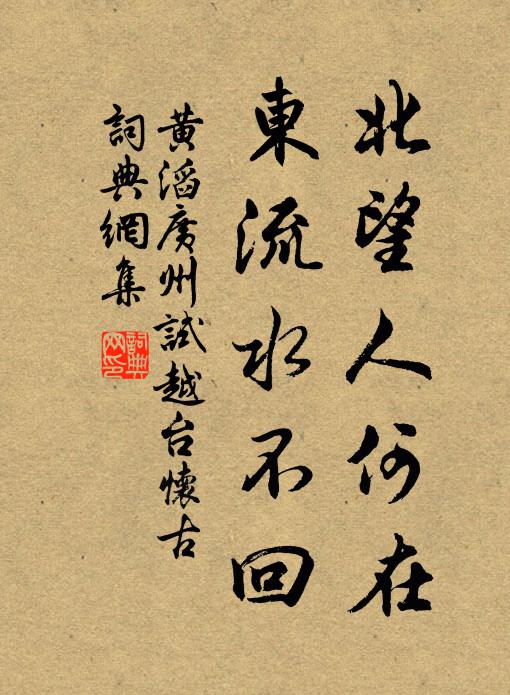 北望人何在
東流水不回
黄滔廣州試越台懷古
詞典網集
詞典网印